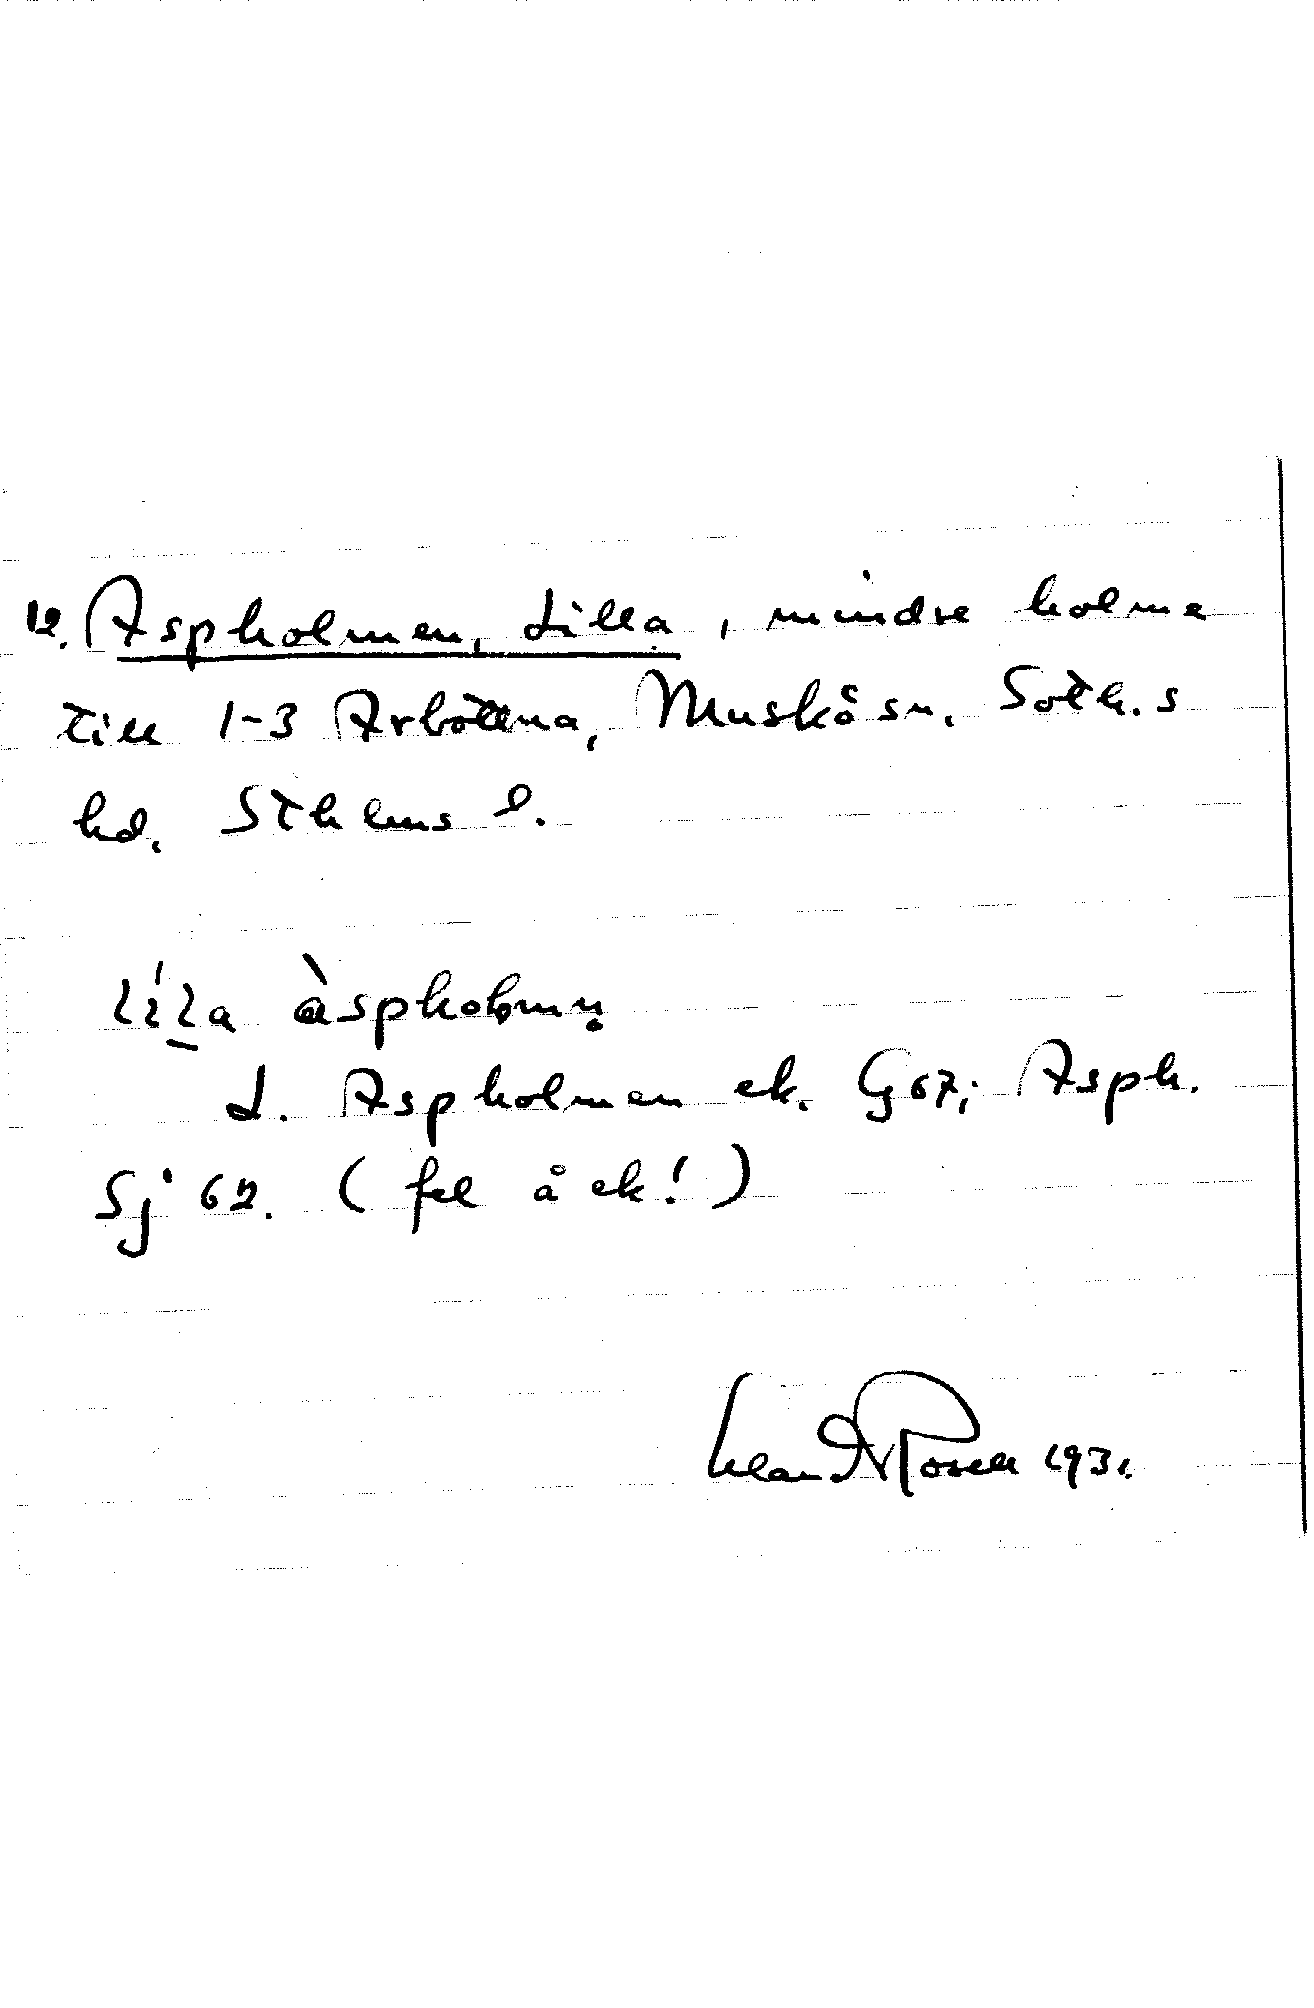 12. Aspholmen, Lilla, mindre holme
till 1-3 Arbottna, Muskö sn. Soth.s
hd. Sthlms l.
líl̲a àspholmn̥
L. Aspholmen ek. G 67; Asph.
Sj 62. (fel å ek!)
1931.